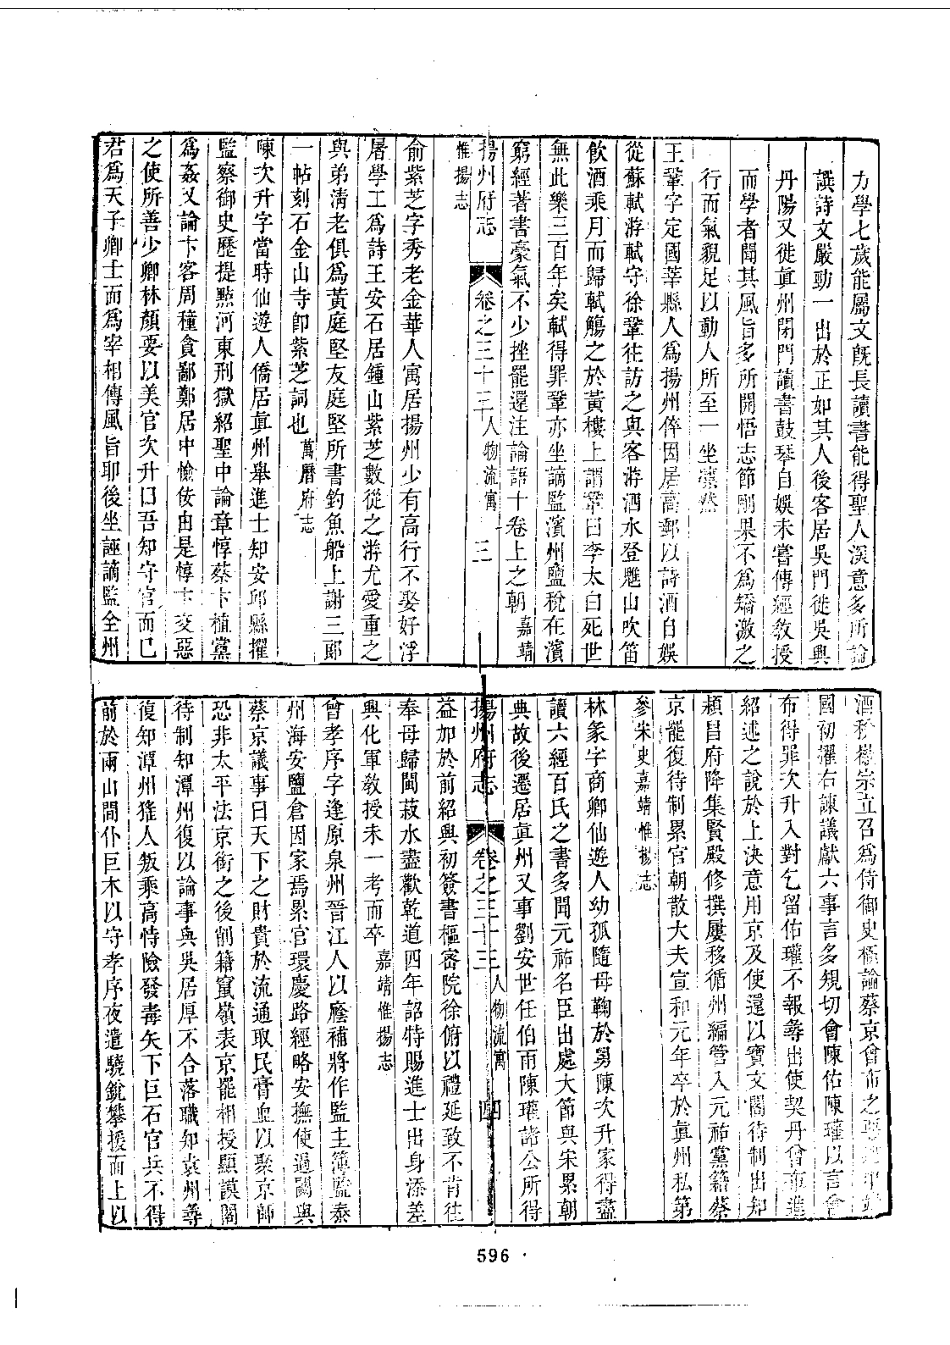 力學七歲能屬文旣長讀書能得聖人深意多所論
譔詩文嚴勁一出於正如其人後客居吳門徙吳興
丹陽又徙眞州閉門讀書鼓琴自娛未嘗傳經敎授
而學者聞其風旨多所開悟志節剛果不爲矯激之
行而氣貌足以動人所至一坐凛然
王鞏字定國莘縣人爲揚州倅因居高郵以詩酒自娛
從蘇軾游軾守徐鞏往訪之與客游泗水登魋山吹笛
飮酒乘月而歸軾觴之於黃樓上謂鞏曰李太白死世
無此樂三百年矣軾得罪鞏亦坐謫監濱州鹽稅在濱
窮經著書豪氣不少挫罷還注論語十卷上之朝 嘉靖
惟揚志
揚州府志 卷之三十三 人物流寓 三
俞紫芝字秀老金華人寓居揚州少有高行不娶好浮
屠學工爲詩王安石居鍾山紫芝數從之游尤愛重之
與弟清老俱爲黃庭堅友庭堅所書釣魚船上謝三郎
一帖刻石金山寺卽紫芝詞也 萬曆府志
陳次升字當時仙遊人僑居眞州舉進士知安邱縣擢
監察御史歷提點河東刑獄紹聖中論章惇蔡卞植黨
爲姦又論卞客周穜貪鄙鄭居中憸佞由是惇卞交惡
之使所善少卿林顏要以美官次升曰吾知守官而已
君爲天子卿士而爲宰相傳風旨耶後坐誣謫監全州
酒稅徽宗立召爲侍御史極論蔡京曾布之惡
國初擢右諫議獻六事言多規切會陳佑陳瓘以言曾
布得罪次升入對乞留佑瓘不報尋出使契丹曾布進
紹述之說於上決意用京及使還以寶文閣待制出知
潁昌府降集賢殿修撰屢移循州編管入元祐黨籍蔡
京罷復待制累官朝散大夫宣和元年卒於眞州私第
參宋史嘉靖惟揚志
林豖字商卿仙遊人幼孤隨母鞠於舅陳次升家得盡
讀六經百氏之書多聞元祐名臣出處大節與宋累朝
典故後遷居眞州又事劉安世任伯雨陳瓘諸公所得
揚州府志 卷之三十三 人物流寓 四
益加於前紹興初簽書樞密院徐俯以禮延致不肯往
奉母歸閩菽水盡歡乾道四年詔特賜進士出身添差
興化軍敎授未一考而卒 嘉靖惟揚志
曾孝序字逢原泉州晉江人以廕補將作監主簿監泰
州海安鹽倉因家焉累官環慶路經略安撫使過闕與
蔡京議事曰天下之財貴於流通取民膏血以聚京師
恐非太平法京銜之後削籍竄嶺表京罷相授顯謨閣
待制知潭州復以論事與吳居厚不合落職知袁州尋
復知潭州猺人叛乘高恃險發毒矢下巨石官兵不得
前於兩山間仆巨木以守孝序夜遣驍銳攀援而上以
596